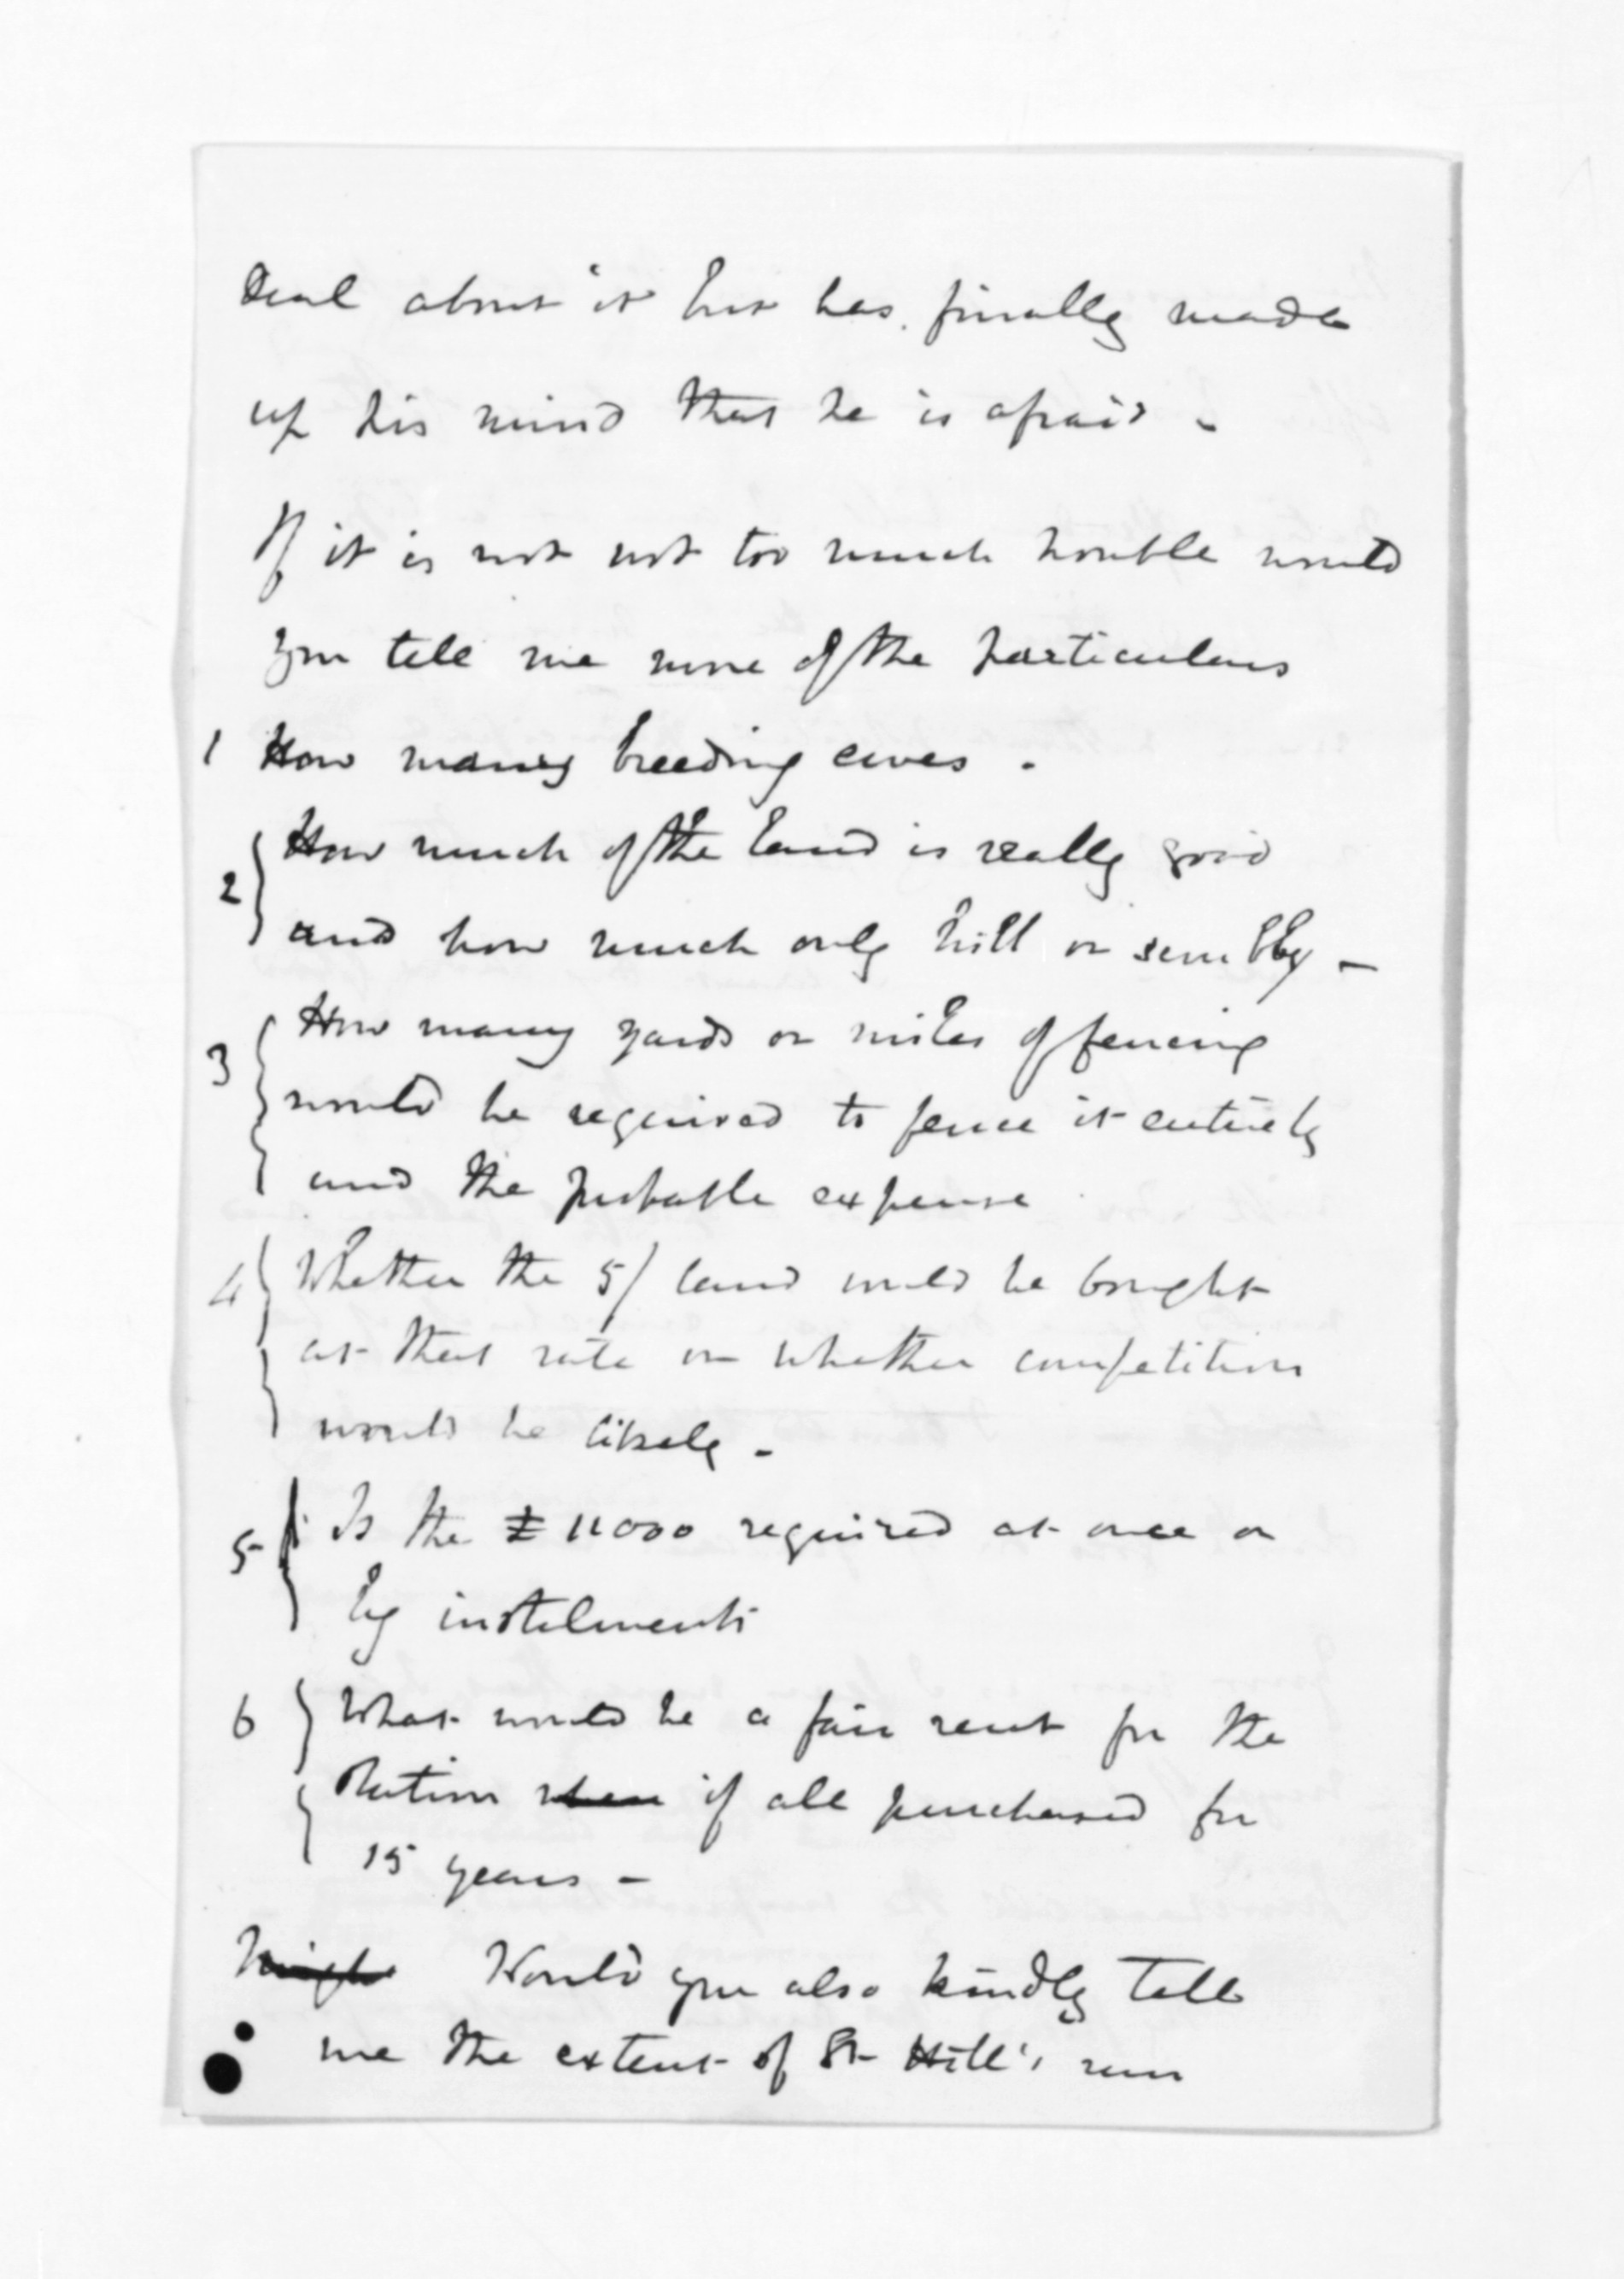 deal about it but has finally made
up his mind that he is afraid -
If it is not not too much trouble would
you tell me more of the particulars
1 How many breeding ewes .
2 How much of the land is really good
and how much only hill or scrubby -
3 How many yards or miles of fencing
would be required to fence it entirely
and the probable expense
4 Whether the 5/ land could be bought
at that rate or whether competition
would be likely -
5 Is the £11000 required at once or
by instalments
6 What would be a fair rent for the
Station if all purchased for
15 years -
Would you also kindly tell
me the extent of St Hill's run